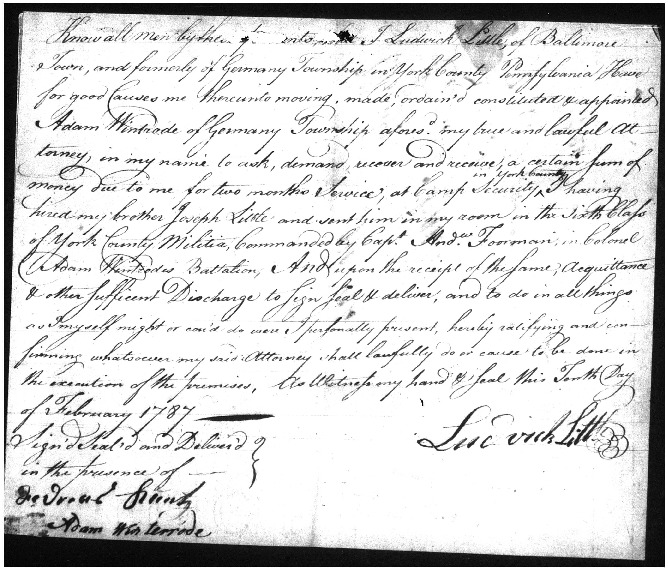 Know all men by these I Ludwick Little, of Baltimore
Town, and formerly of Germany Township in York County Pennsylvania Have
for good Causes me thereunto moving, made, ordain'd constituted & appointed
Adam Wintrode of Germany Township afores.d my true and lawful At-
torney, in my name to ask, demand, recover and receive, a certain sum of
money due to me for two months Service, at Camp Security, in York County I having
hired my brother Joseph Little and sent him in my room in the Sixth Class
of York County Militia, Commanded by Cap.t And.w Foorman, in Colonel
Adam Wintrodes Battalion, And upon the receipt of the same, Acquittance
& other sufficent Discharge to sign seal & deliver, and to do in all things
as I myself might or cou'd do were I personally present, hereby ratifying and con-
firming whatsoever my said Attorney shall lawfully do or cause to be done in
the execution of the premises, As Witness my hand & seal this Tenth Day
of February 1787
Sign'd Seal'd and Deliver'd
in the presence of
Ludwick Little
Adam Winterode